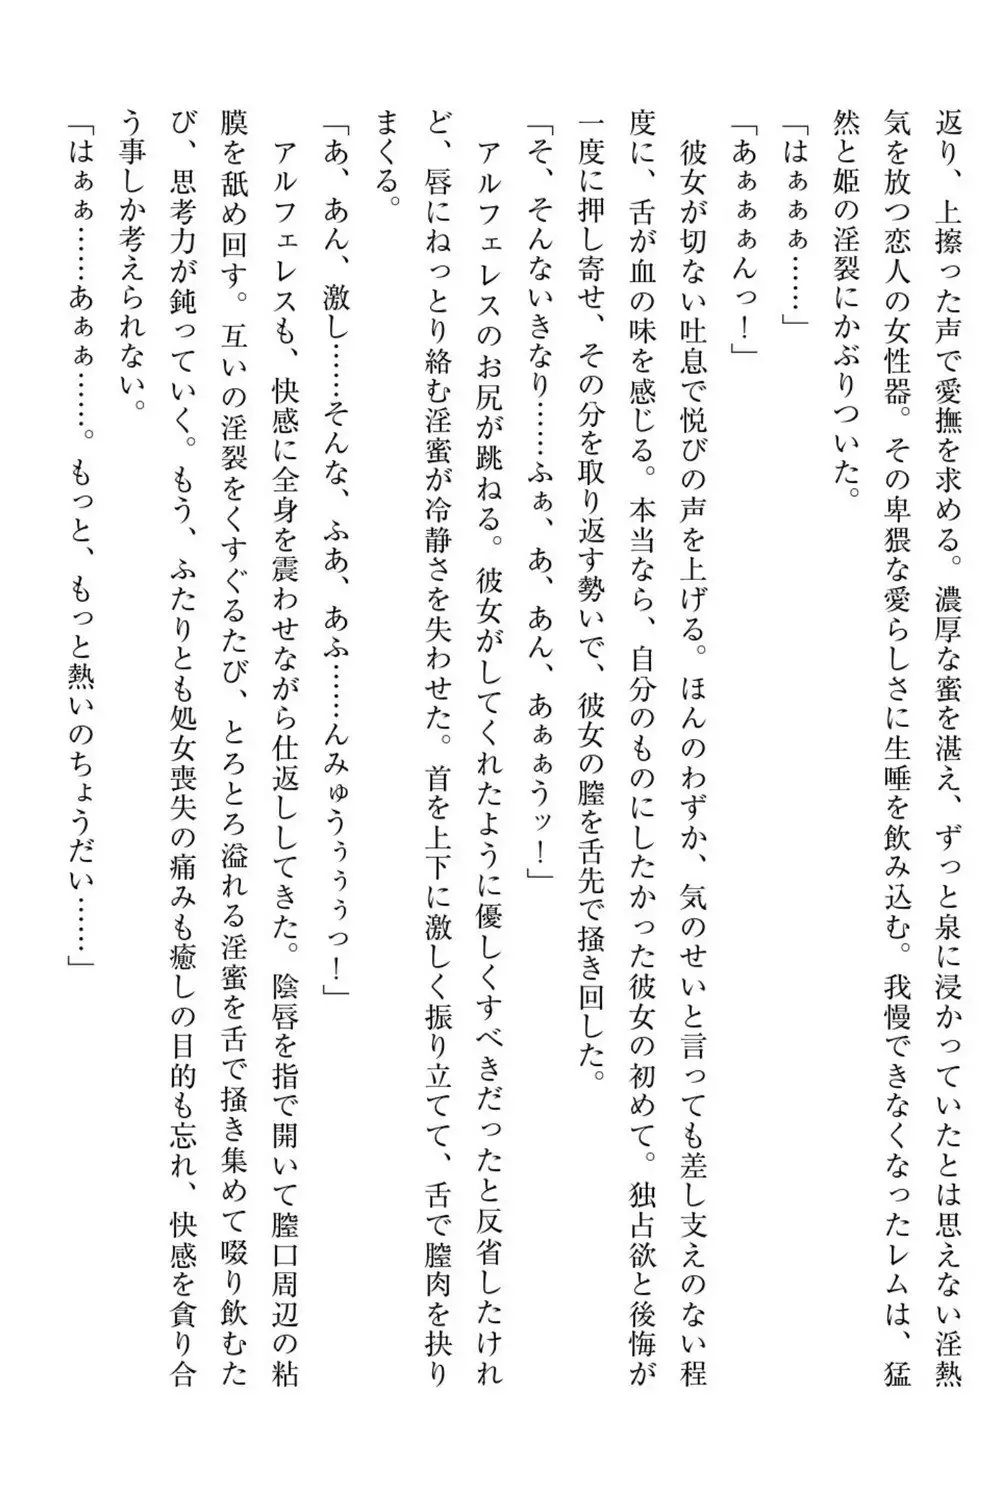 返り、上擦った声で愛撫を求める。濃厚な蜜を湛え、ずっと泉に浸かっていたとは思えない淫熱
気を放つ恋人の女性器。その卑猥な愛らしさに生唾を飲み込む。我慢できなくなったレムは、猛
然と姫の淫裂にかぶりついた。
「はぁぁぁ……」
「あぁぁぁんっ！」
　彼女が切ない吐息で悦びの声を上げる。ほんのわずか、気のせいと言っても差し支えのない程
度に、舌が血の味を感じる。本当なら、自分のものにしたかった彼女の初めて。独占欲と後悔が
一度に押し寄せ、その分を取り返す勢いで、彼女の膣を舌先で掻き回した。
「そ、そんないきなり……ふぁ、あ、あん、あぁぁうッ！」
　アルフェレスのお尻が跳ねる。彼女がしてくれたように優しくすべきだったと反省したけれ
ど、唇にねっとり絡む淫蜜が冷静さを失わせた。首を上下に激しく振り立てて、舌で膣肉を抉り
まくる。
「あ、あん、激し……そんな、ふあ、あふ……んみゅうぅぅぅっ！」
　アルフェレスも、快感に全身を震わせながら仕返ししてきた。陰唇を指で開いて膣口周辺の粘
膜を舐め回す。互いの淫裂をくすぐるたび、とろとろ溢れる淫蜜を舌で掻き集めて啜り飲むた
び、思考力が鈍っていく。もう、ふたりとも処女喪失の痛みも癒しの目的も忘れ、快感を貪り合
う事しか考えられない。
「はぁぁ……あぁぁ……。もっと、もっと熱いのちょうだい……」